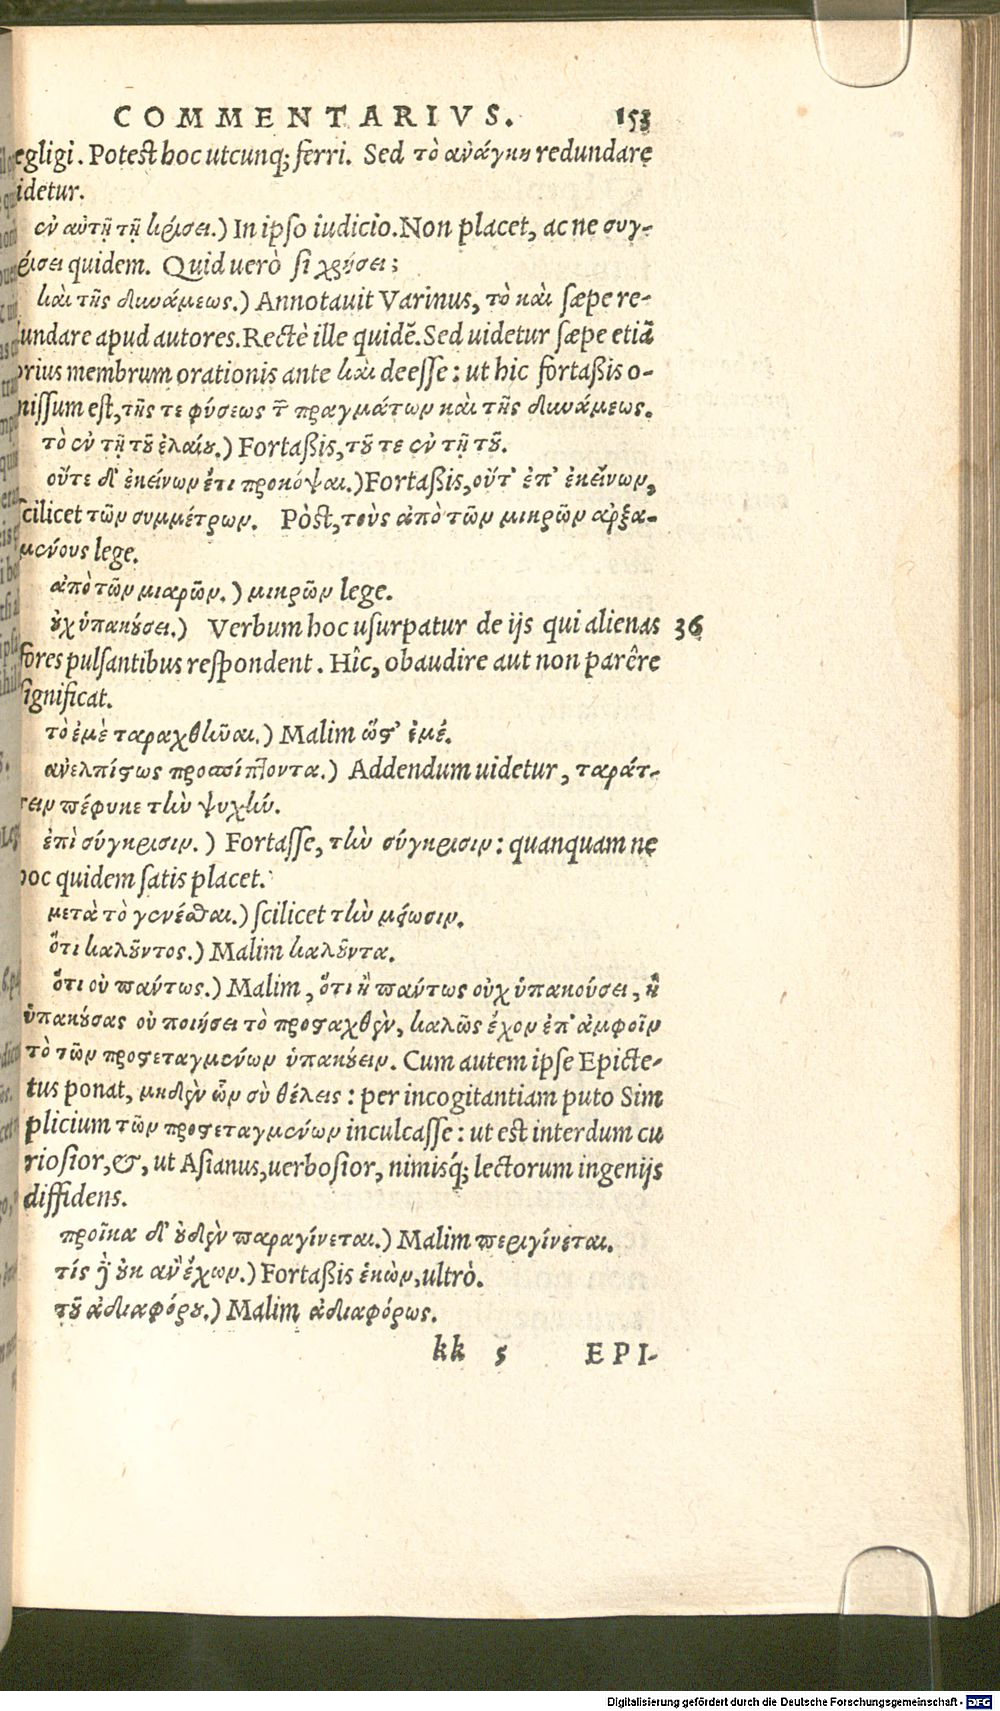 COMMENTARIVS. 153
egligi. Potest hoc utcunq; ferri. Sed τὸ ἀνάγκη redundare
idetur.
ἐν αὐτῇ τῇ κρίσει.) In ipso iudicio. Non placet, ac ne συγ-
ρίσει quidem. Quid uerò si χρήσει;
καὶ τῆς δυνάμεως.) Annotauit Varinus, τὸ καὶ sæpe re-
undare apud autores. Rectè ille quidẽ. Sed uidetur sæpe etiã
prius membrum orationis ante καὶ deesse: ut hic fortaßis o-
missum est, τῆς τε φύσεως τῶν πραγμάτων καὶ τῆς δυνάμεως.
τὸ ἐν τῇ τοῦ ἐλαίου.) Fortaßis, τοῦ τε ἐν τῇ τοῦ.
οὔτε δ' ἐκείνων ἔτι προκόψαι.) Fortaßis, οὔτ' ἐπ' ἐκείνων,
scilicet τῶν συμμέτρων. Pòst, τοὺς ἀπὸ τῶν μικρῶν ἀρξα-
μένους lege.
ἀπὸ τῶν μιαρῶν.) μικρῶν lege.
οὐχ ὑπακούσει.) Verbum hoc usurpatur de ijs qui alienas 36
fores pulsantibus respondent. Hîc, obaudire aut non parêre
significat.
τὸ ἐμὲ ταραχθῆναι.) Malim ὥστ' ἐμέ.
ἀνελπίστως προσπίπτοντα.) Addendum uidetur, ταράτ-
τειν πέφυκε τὴν ψυχήν.
ἐπὶ σύγκρισιν.) Fortasse, τὴν σύγκρισιν: quanquam ne
hoc quidem satis placet.
μετὰ τὸ γενέσθαι.) scilicet τὴν μείωσιν.
ὅτι καλοῦντος.) Malim καλοῦντα.
ὅτι οὐ πάντως.) Malim, ὅτι ἢ πάντως οὐχ ὑπακούσει, ἢ
ὑπακούσας οὐ ποιήσει τὸ προσταχθὲν, καλῶς ἔχον ἐπ' ἀμφοῖν
τὸ τῶν προστεταγμένων ὑπακούειν. Cum autem ipse Epicte-
tus ponat, μηδὲν ὧν σὺ θέλεις: per incogitantiam puto Sim
plicium τῶν προστεταγμένων inculcasse: ut est interdum cu
riosior, &, ut Asianus, uerbosior, nimisq́; lectorum ingenijs
diffidens.
προῖκα δ' οὐδὲν παραγίνεται.) Malim περιγίνεται.
τίς γὰρ οὐκ ἂν ἔχων.) Fortaßis ἑκὼν, ultrò.
τοῦ ἀδιαφόρου.) Malim ἀδιαφόρως.
kk 5 EPI-
Digitalisierung gefördert durch die Deutsche Forschungsgemeinschaft - DFG